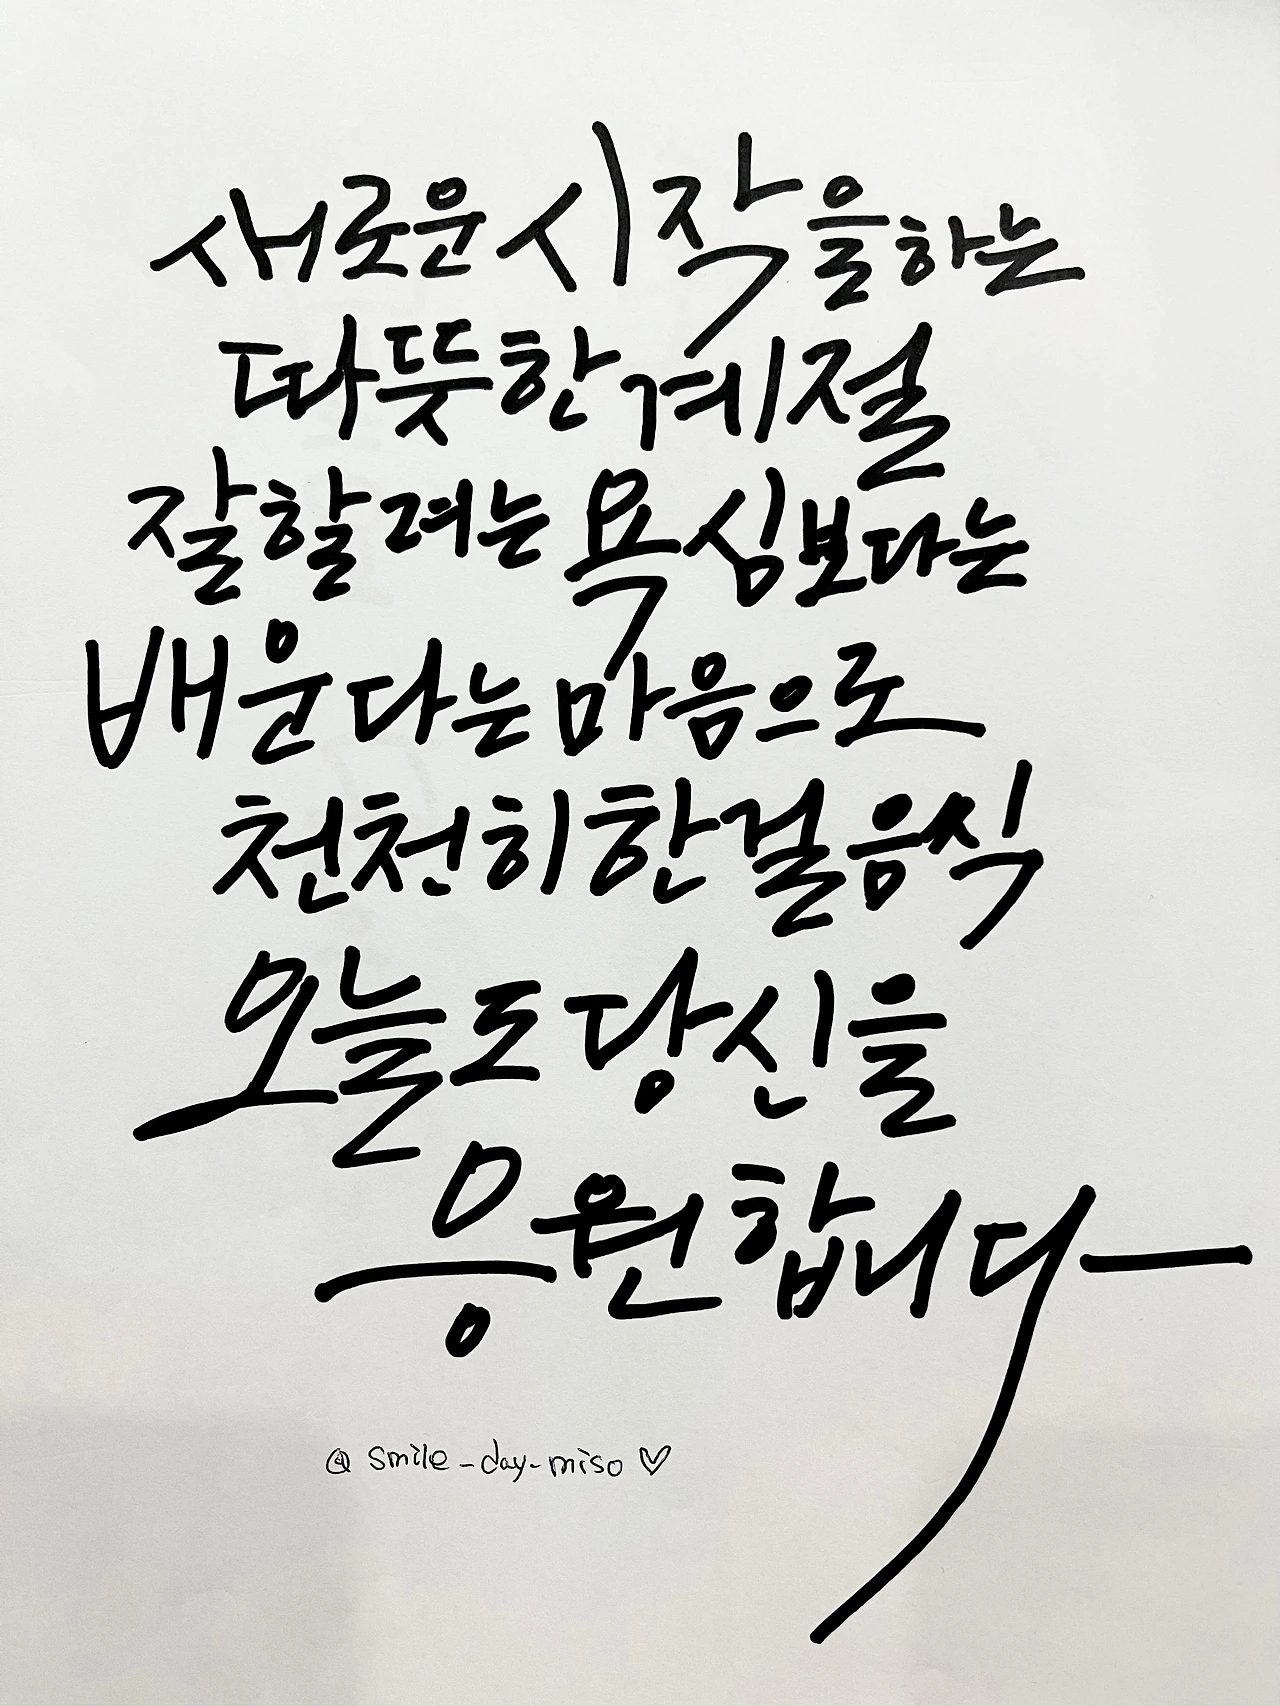 새로운 시작을 하는
따뜻한 계절
잘할려는 욕심보다는
배운다는 마음으로
천천히 한걸음식
오늘도 당신을
응원합니다
@ smile_day_miso ♡